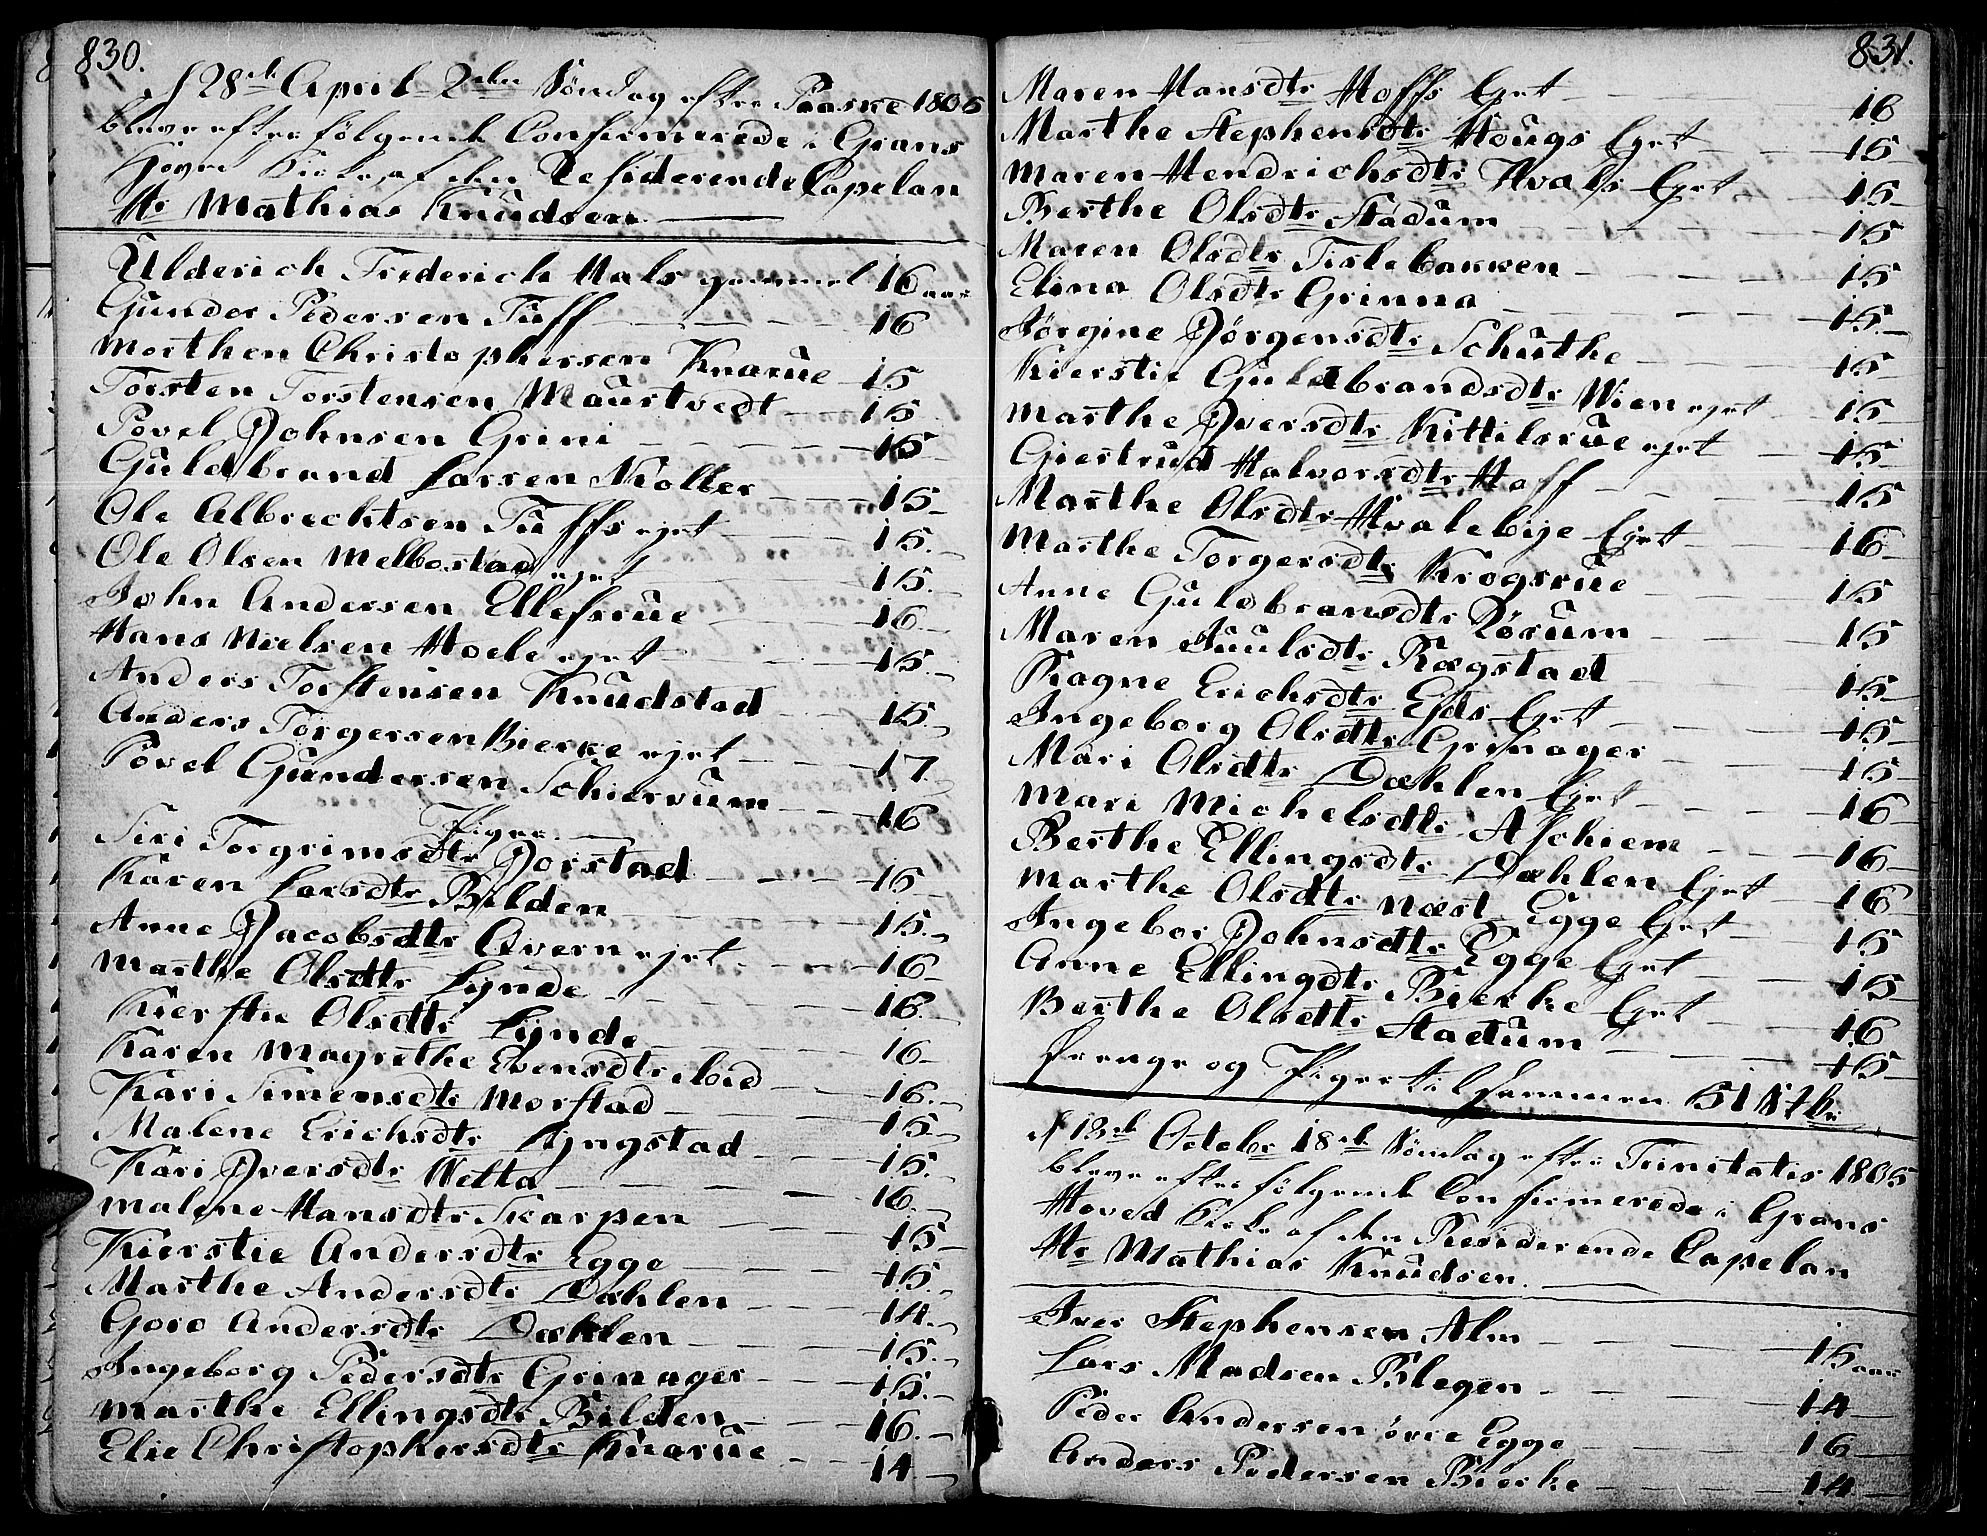 830.
d 28de April 2den Søndag efter Paaske 1805
bleve efter følgende Confirmerede i Grans
Hoved Kirke af den Residerende Capelan
Hr Mathias Knudsen
Ulderich Frederich Hals gammel 16 aar
Gunder Pedersen Tuff 16
Morthen Christophersen Knarue 15
Torsten Torstensen Maurtvedt 15
Povel Johnsen Grini 15
Guldbrand Larsen Møller 15
Ole Albrechtsen Tuffs ejet 15
Ole Olsen Melbostad ejet 15
John Andersen Ellefsrue 16
Hans Nielsen Hoele ejet 15
Anders Torstensen Knudstad 15
Anders Torgersen Bierke ejet 17
Povel Gundersen Schierrum 16
Piger
Siri Torgrimsdtr Jorstad 15
Karen Larsdtr Bilden 15
Anne Jacobsdtr Qvern ejet 16
Marthe Olsdtr Lynde 16
Kierstie Olsdtr Lynde 16
Karen Magrethe Evensdtr ibid 16
Kari Simensdtr Morstad 15
Malene Erichsdtr Lyngstad 15
Kari Iversdtr Wetta 16
Malene Hansdtr Skarpen 15
Kierstie Andersdtr Egge 15
Marthe Andersdtr Dæhlen 14
Goro Andersdtr Dæhlen 15
Ingeborg Pedersdtr Grinager 15
Marthe Ellingsdtr Bilden 16
Elie Christophersdtr Knarue 14
831.
Maren Hansdtr Hoffs Ejet 16
Marthe Stephensdtr Hougs Ejet 15
Maren Hendrichsdtr Hvals Ejet 15
Berthe Olsdtr Stadum 15
Maren Olsdtr Tislebakken 15
Elina Olsdtr Grinna 15
Jørgine Jørgensdtr Schuthe 15
Kierstie Guldbrandsdtr Wien ejet 15
Marthe Iversdtr Kittilsrue ejet 15
Giertrud Halvorsdtr Hoff 15
Marthe Olsdtr Hvalebye Ejet 16
Marthe Torgersdtr Krogsrue 15
Anne Guldbransdtr Rørum 15
Maren Juulsdtr Rægstad 15
Ragne Erichsdtr Eids Ejet 15
Ingeborg Olsdtr Grinager 15
Mari Olsdtr Dæhlen Ejet 16
Mari Michelsdtr Aschiem 16
Berthe Ellingsdtr Dæhlen Ejet 16
Marthe Olsdtr næst Egge Ejet 15
Ingebor Johnsdtr Egge Ejet 15
Anne Ellingdtr Bierke Ejet 16
Berthe Olsdtr Stadum 15
Drenge og Piger tilsammen 51 Stkr
d 13de Octobr 18de Søndag efter Trinitatis 1805
bleve efter følgende Confirmerede i Grans
Hoved Kirke af den Residerende Capelan
Hr Mathias Knudsen.
Iver Stephensen Alm 15 aar
Lars Madsen Blegen 14
Peder Andersen øvre Egge 16
Anders Pedersen Bierke 14